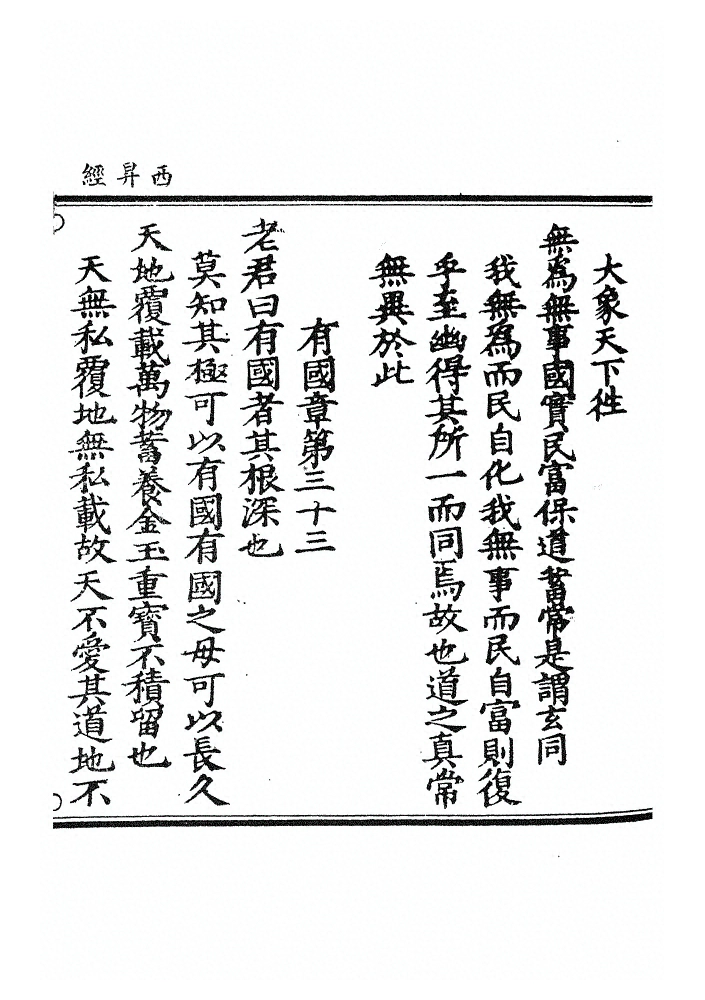 西昇經
大象天下徃
無爲無事國實民富保道畜常是謂玄同
我無爲而民自化我無事而民自富則復
乎至幽得其所一而同焉故也道之真常
無異於此
有國章第三十三
老君曰有國者其根深也
莫知其極可以有國有國之母可以長久
天地覆載萬物蓄養金玉重寳不積留也
天無私覆地無私載故天不愛其道地不